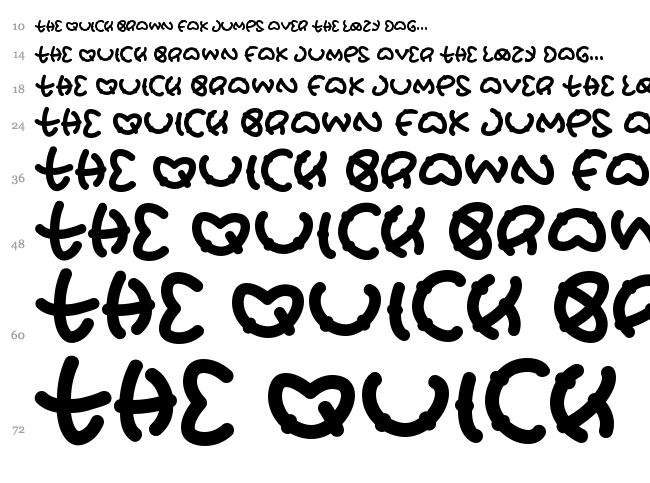 10 THE QUICK BROWN FOX JUMPS OVER THE LAZY DOG...
14 THE QUICK BROWN FOX JUMPS OVER THE LAZY DOG...
18 THE QUICK BROWN FOX JUMPS OVER THE LA
24 THE QUICK BROWN FOX JUMPS O
36 THE QUICK BROWN FO
48 THE QUICK BROW
60 THE QUICK BR
72 THE QUICK